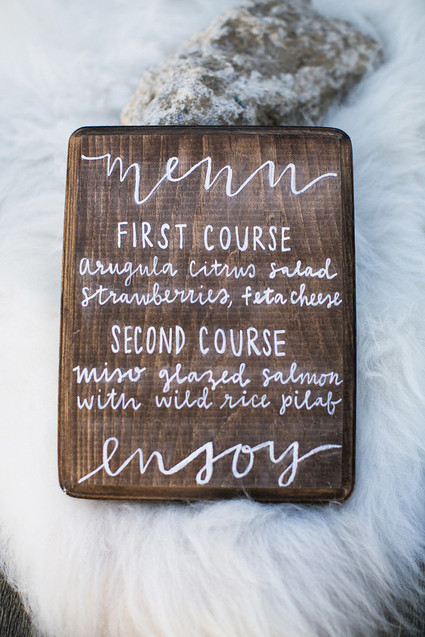 menu
FIRST COURSE
arugula citrus salad
strawberries, feta cheese
SECOND COURSE
miso glazed salmon
with wild rice pilaf
enjoy